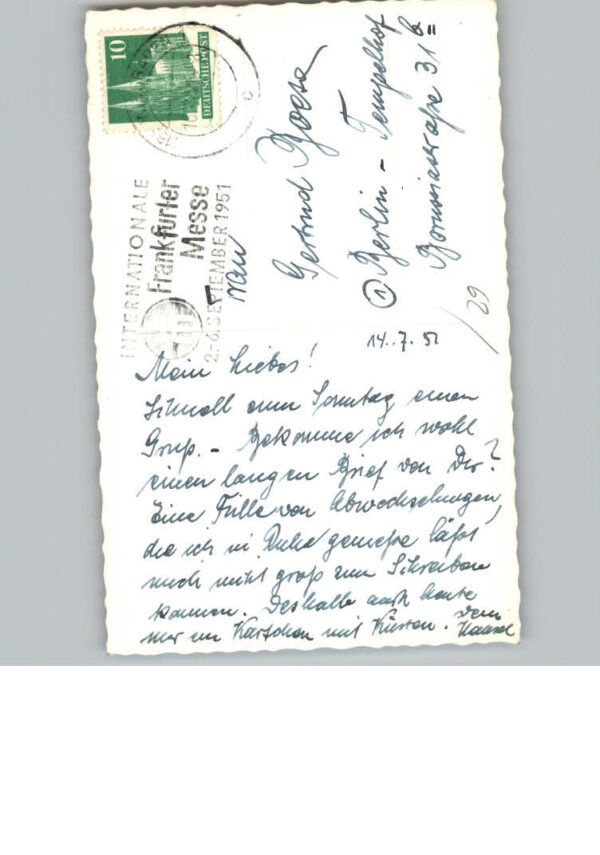 10
DEUTSCHE POST
INTERNATIONALE
Frankfurter
Messe
2.-6. SEPTEMBER 1951
Frau
Gertrud
① Berlin - Tempelhof
Borussiastraße 31 b
/29
14.7.51
Mein Liebes!
Schnell zum Sonntag einen
Gruß. - Bekomme ich wohl
einen langen Brief von Dir?
Eine Fülle von Abwechselungen,
die ich in Ruhe genieße läßt
mich nicht groß zum Schreiben
kommen. Deshalb auch heute
nur ein Kärtchen mit Küssen. Dein